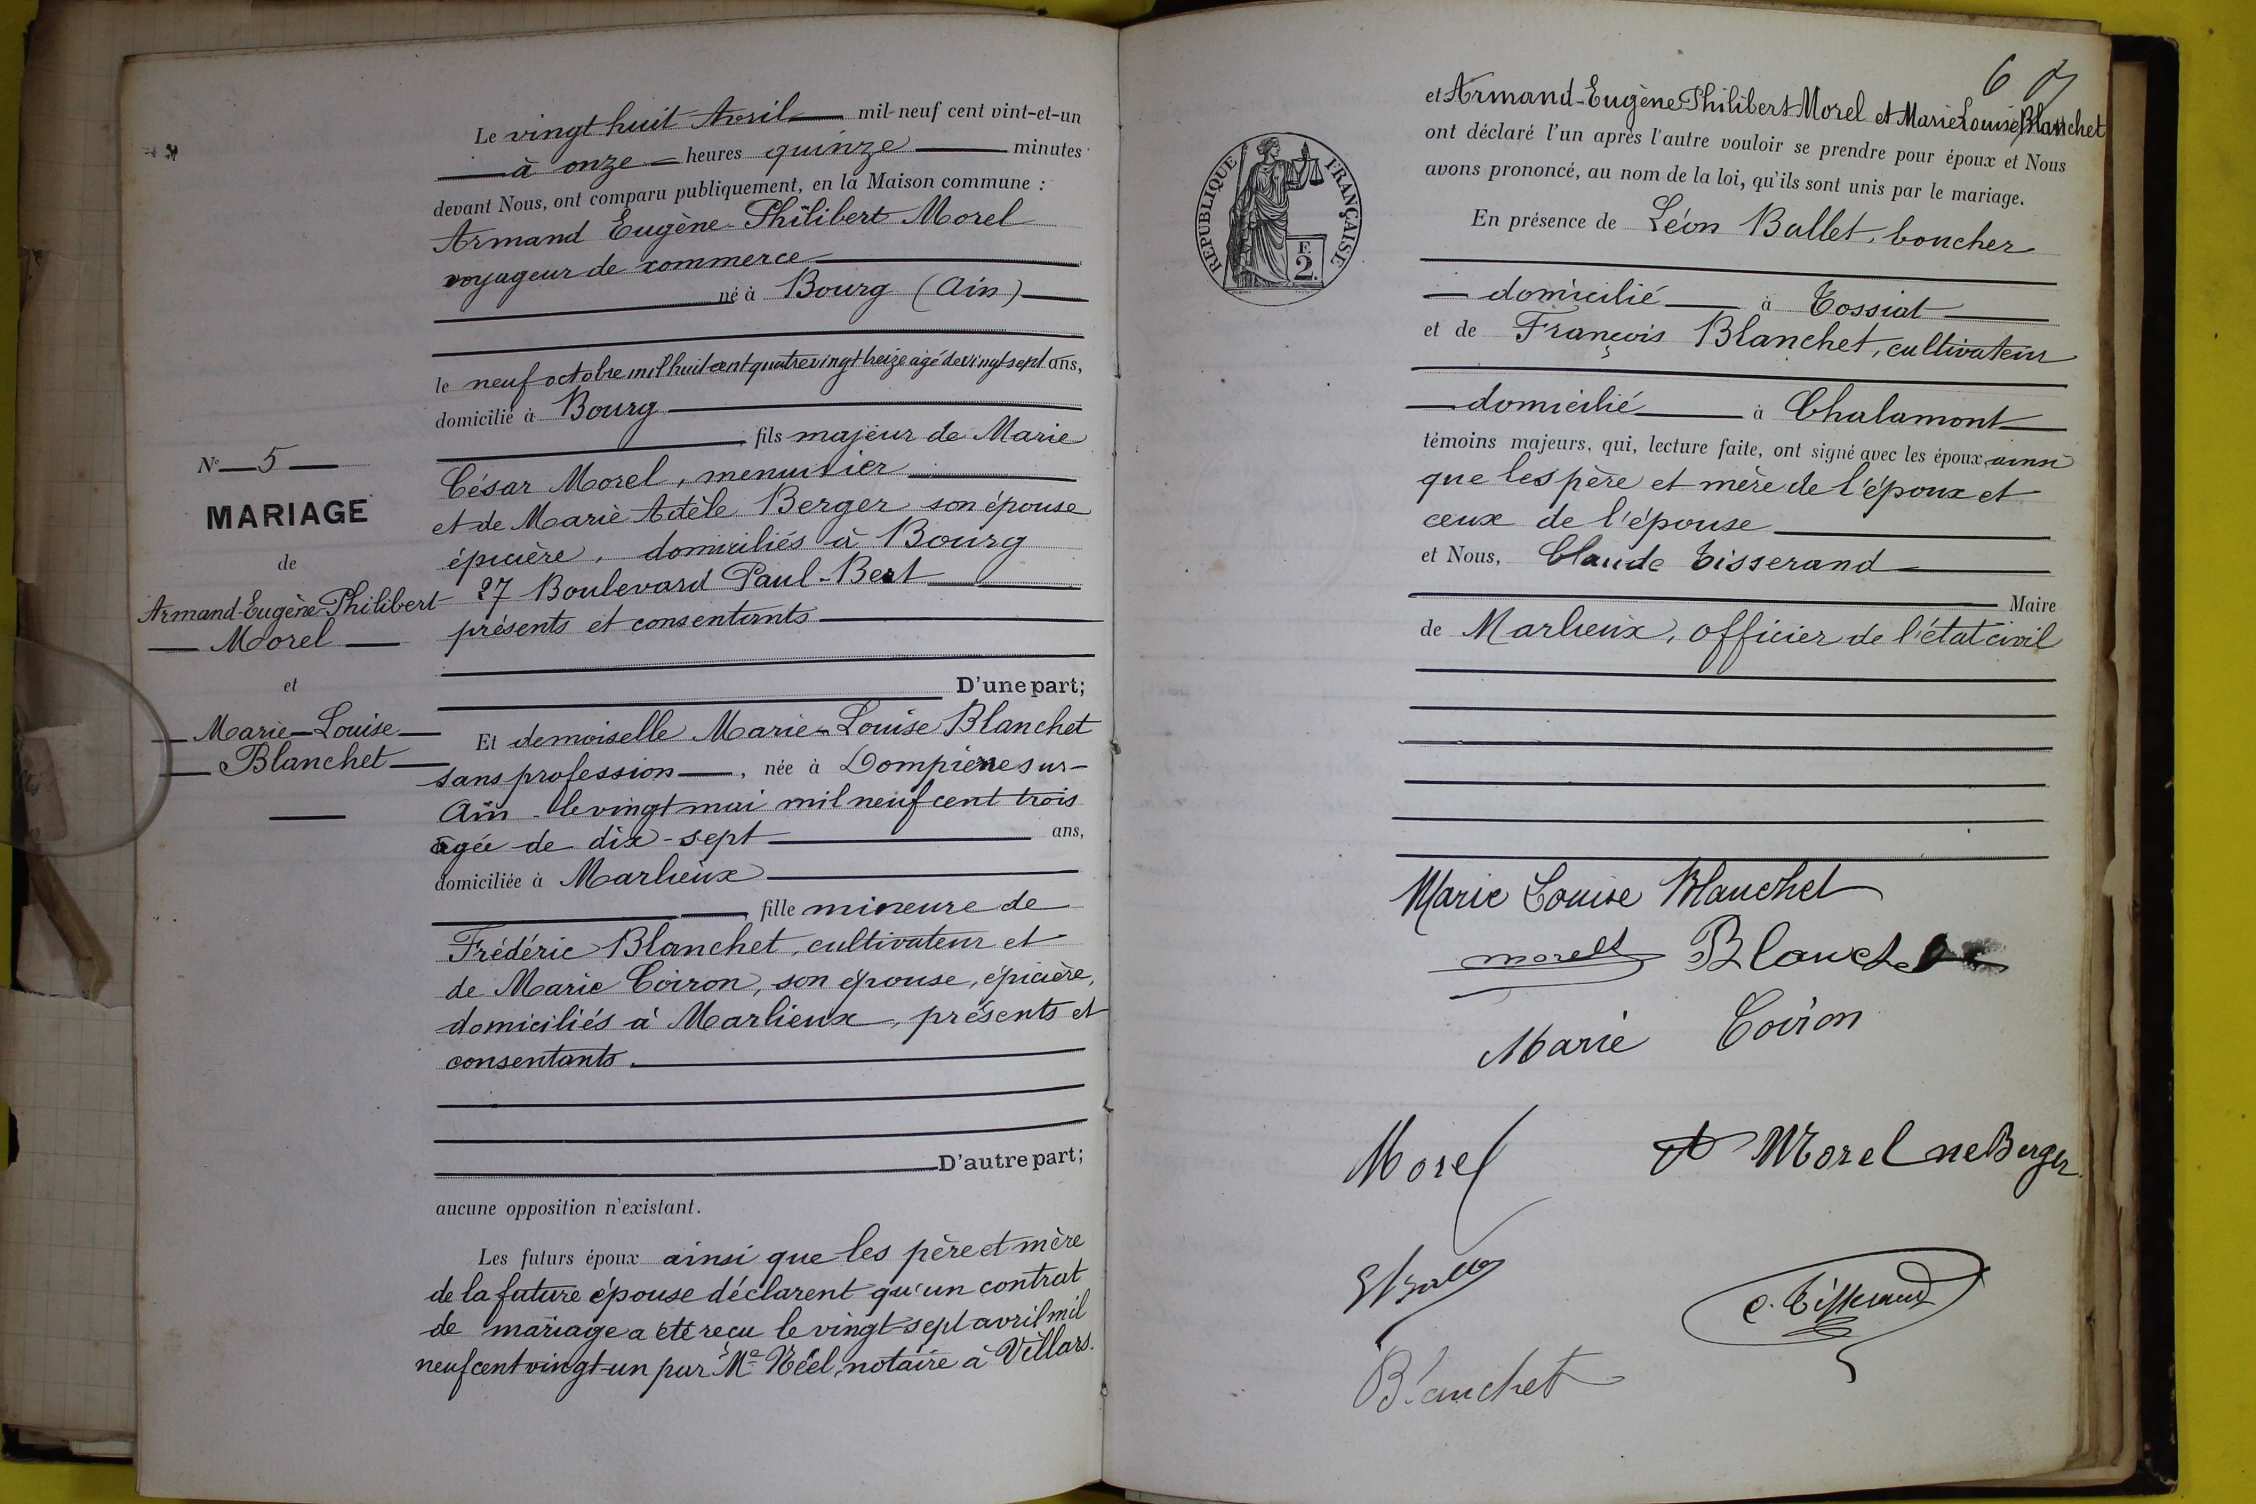 Le vingt huit Avril mil-neuf cent vint-et-un
à onze heures quinze minutes
devant Nous, ont comparu publiquement, en la Maison commune :
Armand Eugène Philibert Morel
voyageur de commerce
né à Bourg (Ain)
le neuf octobre mil huit cent quatre vingt treize âgé de vingt sept ans,
domicilié à Bourg
fils majeur de Marie
César Morel, menuisier
et de Marie Adèle Berger son épouse
épicière, domiciliés à Bourg
27 Boulevard Paul-Bert
présents et consentants
D'une part;
Et demoiselle Marie-Louise Blanchet
sans profession, née à Dompierre sur-
Ain le vingt mai mil neuf cent trois
agée de dix-sept ans,
domiciliée à Marlieux
fille mineure de
Frédéric Blanchet, cultivateur et
de Marie Coiron, son épouse, épicière,
domiciliés à Marlieux, présents et
consentants.
D'autre part;
aucune opposition n'existant.
Les futurs époux ainsi que les père et mère
de la future épouse déclarent qu'un contrat
de mariage a été reçu le vingt-sept avril mil
neuf cent vingt-un par Me Réel, notaire à Villars.
N° 5
MARIAGE
de
Armand-Eugène-Philibert
Morel
et
Marie-Louise
Blanchet
6
et Armand-Eugène Philibert Morel et Marie Louise Blanchet
ont déclaré l'un après l'autre vouloir se prendre pour époux et Nous
avons prononcé, au nom de la loi, qu'ils sont unis par le mariage.
RÉPUBLIQUE FRANÇAISE
F.
2.
En présence de Léon Ballet, boucher
domicilié à Tossiat
et de François Blanchet, cultivateur
domicilié à Chalamont
témoins majeurs, qui, lecture faite, ont signé avec les époux, ainsi
que les père et mère de l'époux et
ceux de l'épouse
et Nous, Claude Tisserand
Maire
de Marlieux, officier de l'état civil
Marie Louise Blanchet
Morel Blanchet
Marie Coiron
Morel
Morel ne Berger
C. Tisserand
Blanchet